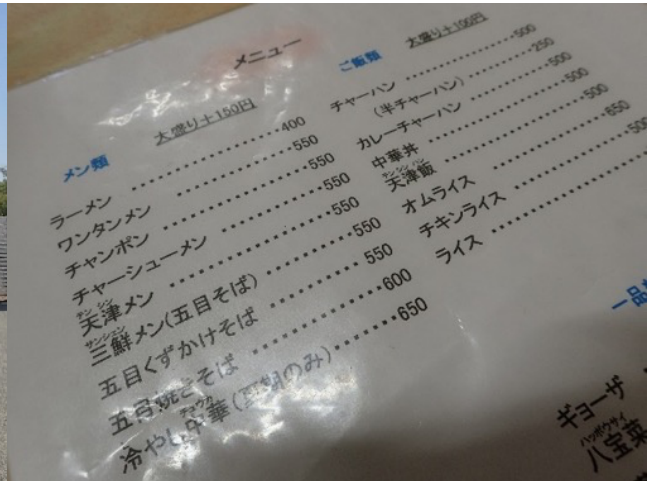 メニュー
メン類 大盛り+150円
ラーメン ・・・・・・・・・・400
ワンタンメン ・・・・・・・・・・550
チャンポン ・・・・・・・・・・550
チャーシューメン ・・・・・・・・・・550
テンシン
天津メン ・・・・・・・・・・550
サンシェン
三鮮メン(五目そば) ・・・・・・・・・・550
五目くずかけそば ・・・・・・・・・・550
五目焼きそば ・・・・・・・・・・600
チュウカ
冷やし中華(夏期のみ)・・・・・・・・・・650
ご飯類 大盛り+100円
チャーハン ・・・・・・・・・・500
(半チャーハン)・・・・・・・・・・250
カレーチャーハン ・・・・・・・・・・500
中華丼 ・・・・・・・・・・500
テンシンハン
天津飯 ・・・・・・・・・・500
オムライス ・・・・・・・・・・650
チキンライス ・・・・・・・・・・
ライス ・・・・・・・・・・
一品
ギョーザ
ハッポウサイ
八宝菜